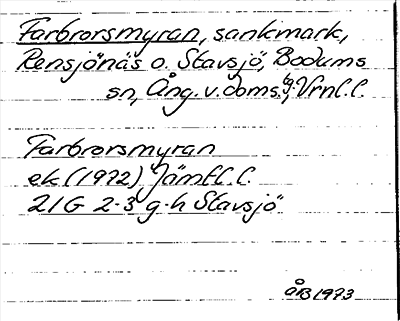 Farbrorsmyran, sankmark,
Rensjönäs o. Stavsjö, Bodums
sn, Ång. v. doms.g., Vrnl. l.
Farbrorsmyran
ek (1972) Jämtl. l.
21G 2-3 g-h Stavsjö
ÅB 1973